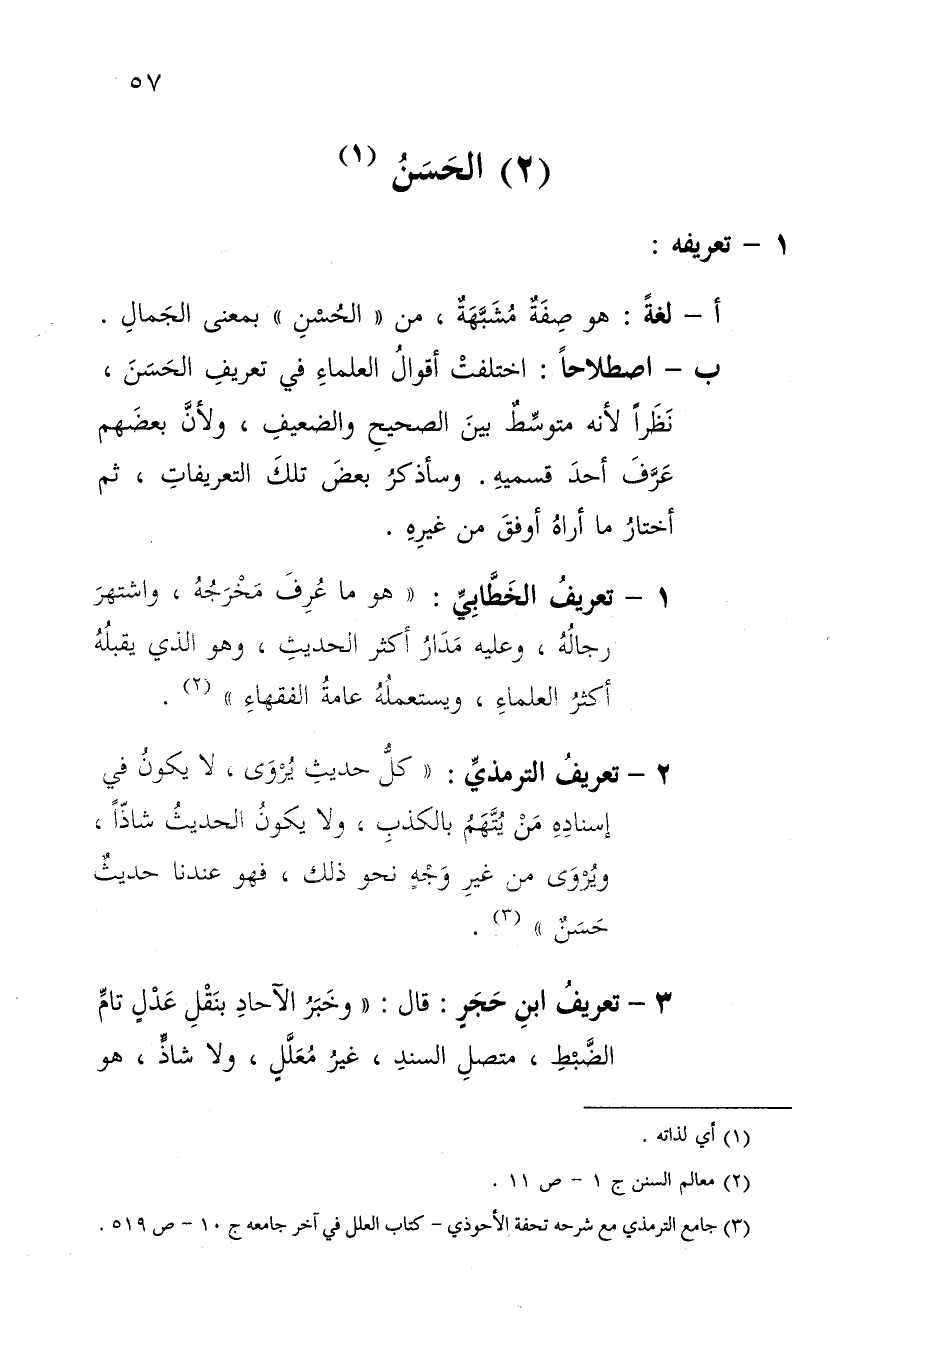 ٥٧
(٢) الحَسَنُ (١)
١ – تعريفه :
أ – لغةً : هو صِفَةٌ مُشَبَّهَةٌ ، من « الحُسْنِ » بمعنى الجَمالِ .
ب – اصطلاحاً : اختلفتْ أقوالُ العلماءِ في تعريفِ الحَسَنَ ،
نَظَراً لأنه متوسِّطٌ بينَ الصحيحِ والضعيفِ ، ولأنَّ بعضَهم
عَرَّفَ أحدَ قسميهِ . وسأذكرُ بعضَ تلكَ التعريفاتِ ، ثم
أختارُ ما أراهُ أوفقَ من غيرِهِ .
١ – تعريفُ الخَطَّابِيِّ : « هو ما عُرِفَ مَخْرَجُهُ ، واشتهرَ
رجالُهُ ، وعليه مَدَارُ أكثر الحديثِ ، وهو الذي يقبلُهُ
أكثرُ العلماءِ ، ويستعملُهُ عامةُ الفقهاءِ » (٢) .
٢ – تعريفُ الترمذيِّ : « كلُّ حديثٍ يُرْوَى ، لا يكونُ في
إسنادِهِ مَنْ يُتَّهَمُ بالكذبِ ، ولا يكونُ الحديثُ شاذّاً ،
ويُرْوَى من غيرِ وَجْهٍ نحو ذلك ، فهو عندنا حديثٌ
حَسَنٌ » (٣) .
٣ – تعريفُ ابنِ حَجَرٍ : قال : « وخَبَرُ الآحادِ بنَقْلِ عَدْلٍ تامِّ
الضَّبْطِ ، متصلِ السندِ ، غيرُ مُعَلَّلٍ ، ولا شاذٍّ ، هو
(١) أي لذاته .
(٢) معالم السنن ج ١ – ص ١١ .
(٣) جامع الترمذي مع شرحه تحفة الأحوذي – كتاب العلل في آخر جامعه ج ١٠ – ص ٥١٩ .